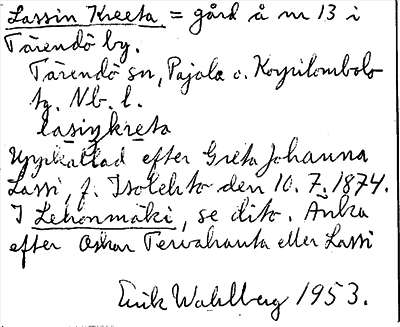 Lassin Kreeta = gård å nr 13 i
Tärendö by.
Tärendö sn, Pajala o. Korpilombolo
tg. Nb. l.
lasiŋkrēta
Uppkallad efter Greta Johanna
Lassi, f. Isolehto den 10.7.1874.
I Lehonmäki, se dito. Änka
efter Oskar Tervahauta eller Lassi
Erik Wahlberg 1953.